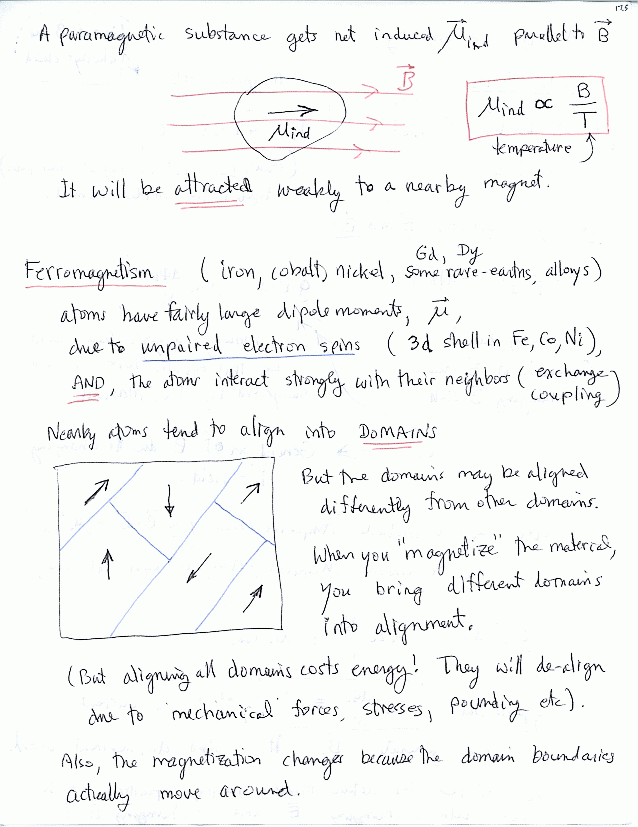 175
A paramagnetic substance gets net induced μ⃗ind parallel to B⃗
B⃗
μind
μind ∝ B/T
temperature
It will be attracted weakly to a nearby magnet.
Gd, Dy
Ferromagnetism (iron, cobalt, nickel, some rare-earths, alloys)
atoms have fairly large dipole moments, μ⃗,
due to unpaired electron spins (3d shell in Fe, Co, Ni),
AND, the atoms interact strongly with their neighbors (exchange coupling)
Nearby atoms tend to align into DOMAINS
But the domains may be aligned
differently from other domains.
When you "magnetize" the material,
you bring different domains
into alignment.
(But aligning all domains costs energy! They will de-align
due to mechanical forces, stresses, pounding etc).
Also, the magnetization changes because the domain boundaries
actually move around.